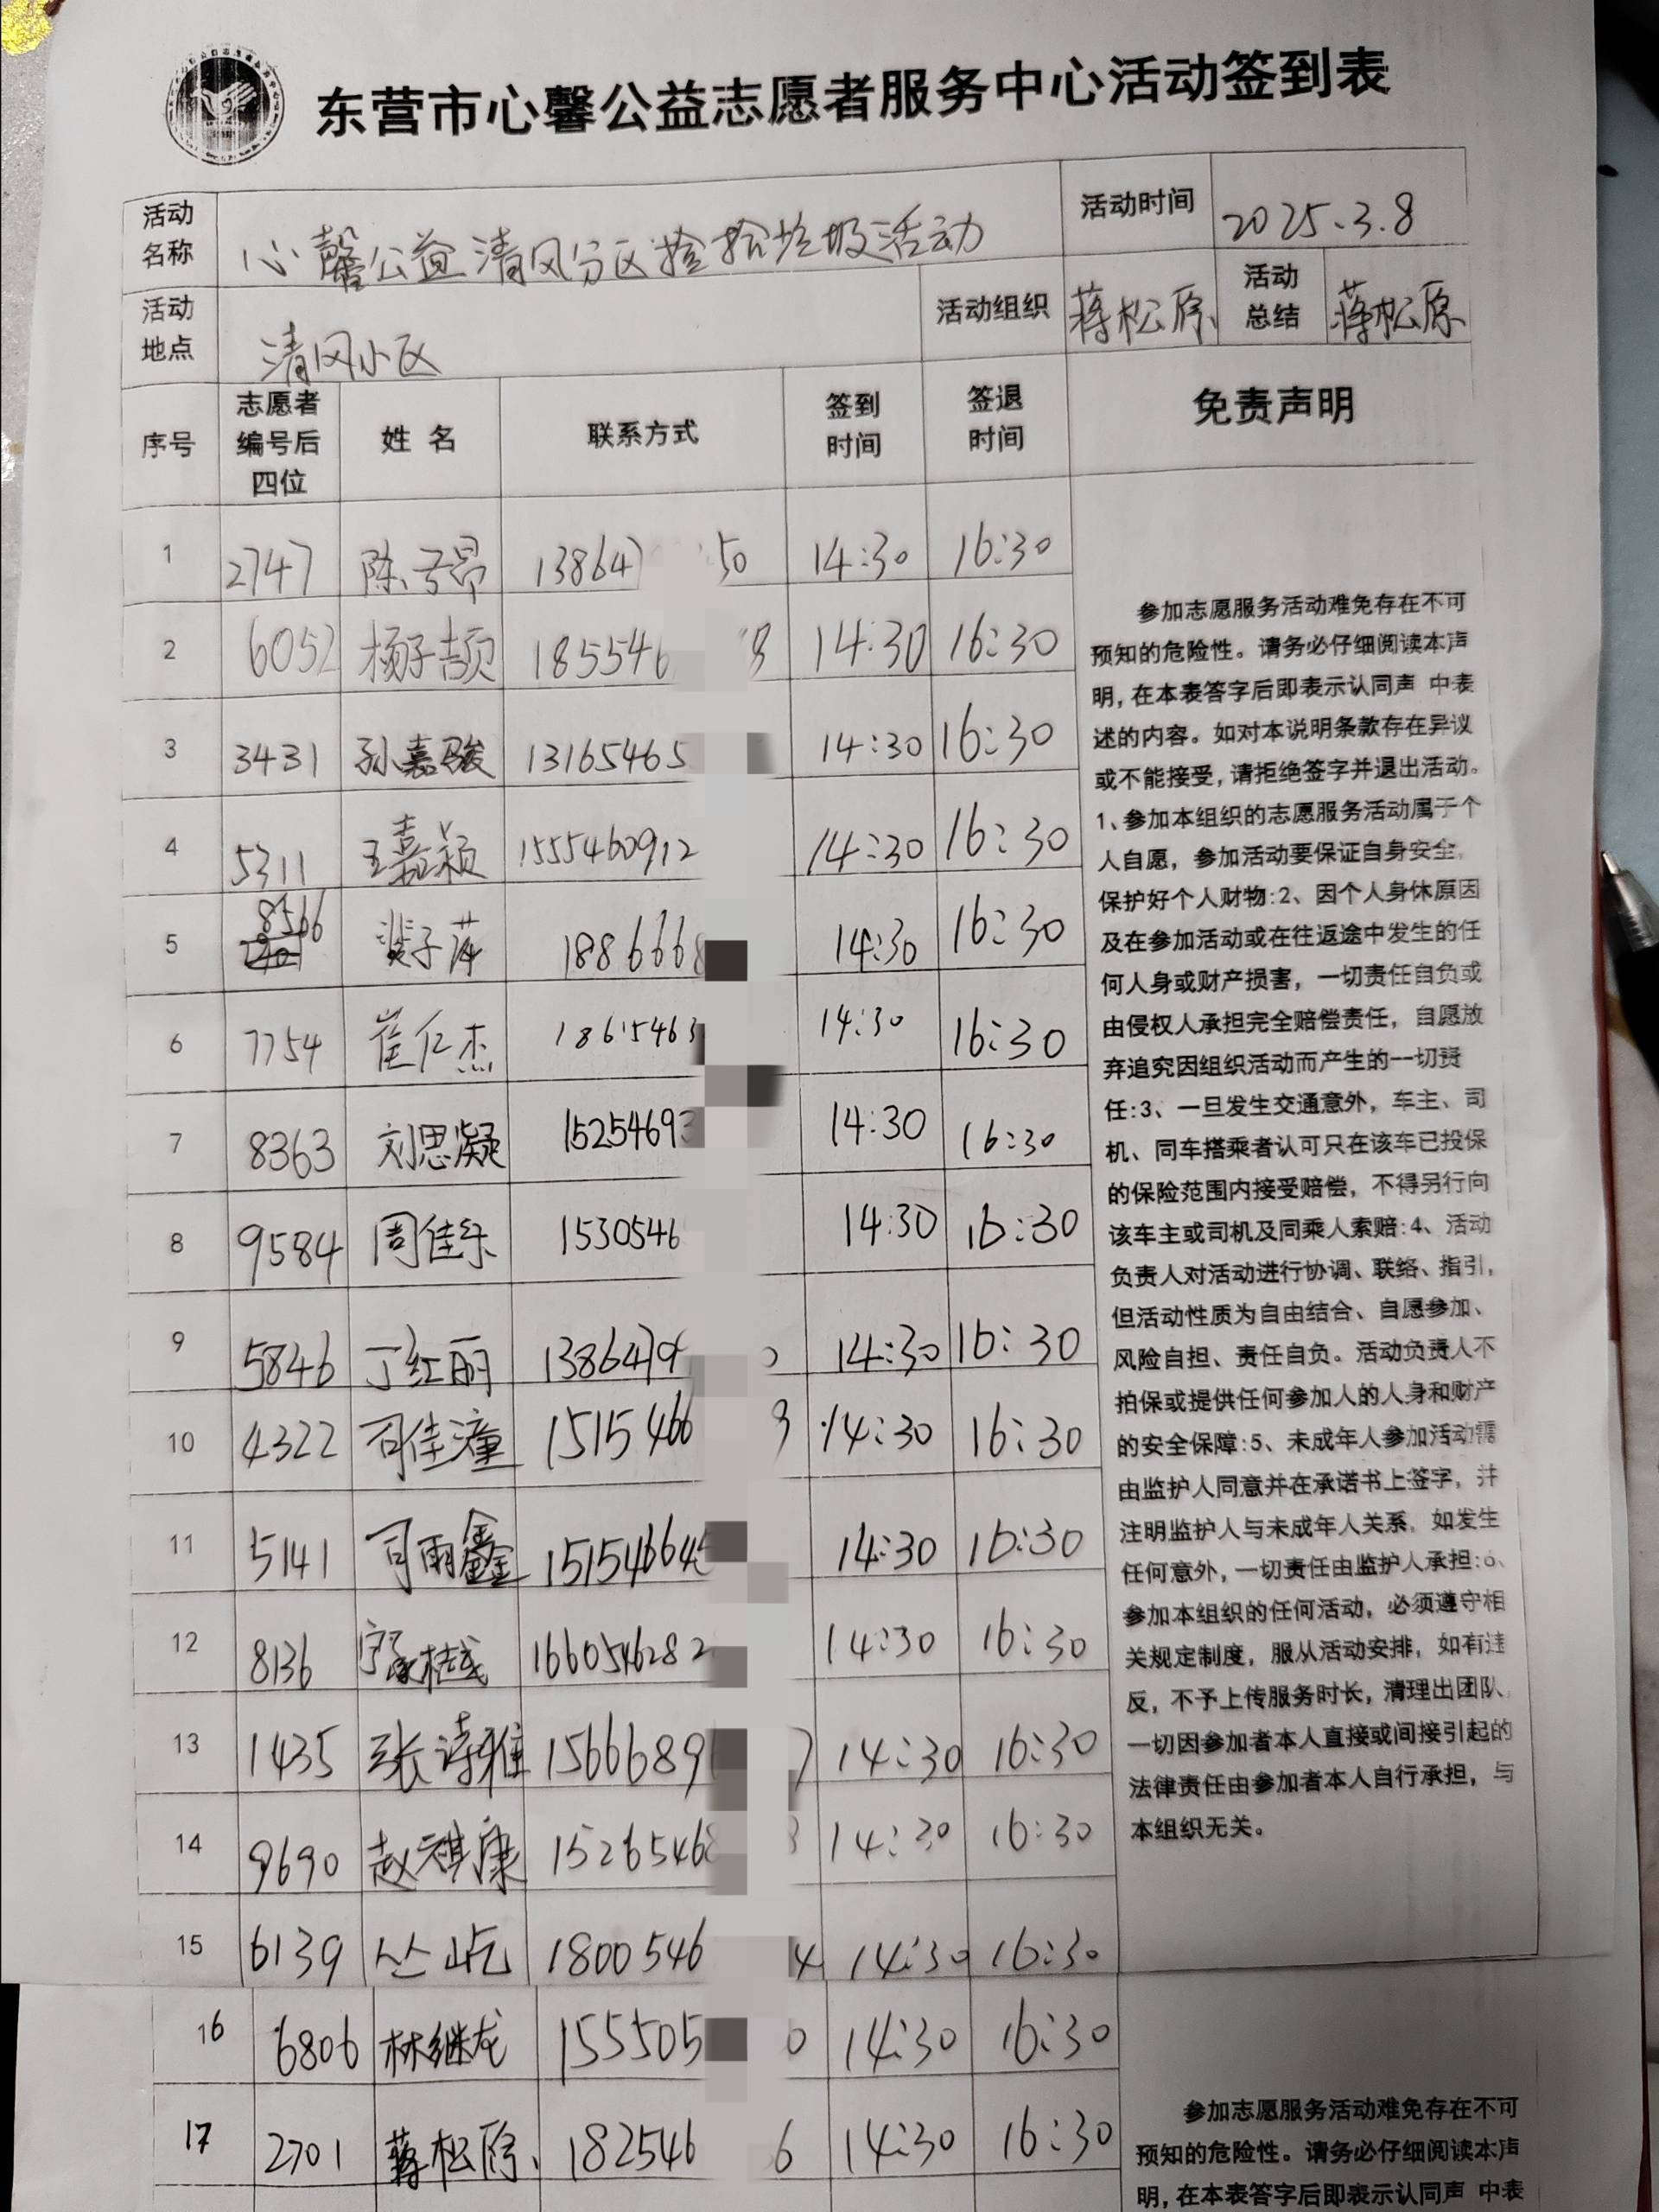 东营市心馨公益志愿者服务中心活动签到表
活动名称 心馨公益清风分区捡拾垃圾活动 活动时间 2025.3.8
活动地点 清风小区 活动组织 蒋松原 活动总结 蒋松原
序号 志愿者编号后四位 姓名 联系方式 签到时间 签退时间 免责声明
1 2747 陈子昂 13864 50 14:30 16:30
2 6052 杨子颉 185546 8 14:30 16:30
3 3431 孙嘉骏 13165465 14:30 16:30
4 5311 王嘉颖 1555460912 14:30 16:30
5 8566 子萍 1886668 14:30 16:30
6 7754 崔仁杰 18615463 14:30 16:30
7 8363 刘思凝 15254693 14:30 16:30
8 9584 周佳乐 1530546 14:30 16:30
9 5846 丁红丽 1386479 14:30 16:30
10 4322 司佳潼 1515466 14:30 16:30
11 5141 司雨鑫 1515466 14:30 16:30
12 8136 1660546282 14:30 16:30
13 1435 张诗雅 15666891 7 14:30 16:30
14 9690 赵祺康 15265468 14:30 16:30
15 6139 丛屹 1800546 4 14:30 16:30
16 6806 林继龙 155505 0 14:30 16:30
17 2701 蒋松原 182546 6 14:30 16:30
参加志愿服务活动难免存在不可
预知的危险性。请务必仔细阅读本声
明,在本表答字后即表示认同声 中表
述的内容。如对本说明条款存在异议
或不能接受,请拒绝签字并退出活动。
1、参加本组织的志愿服务活动属于个
人自愿，参加活动要保证自身安全,
保护好个人财物:2、因个人身休原因
及在参加活动或在往返途中发生的任
何人身或财产损害，一切责任自负或
由侵权人承担完全赔偿责任，自愿放
弃追究因组织活动而产生的一切责
任:3、一旦发生交通意外，车主、司
机、同车搭乘者认可只在该车已投保
的保险范围内接受赔偿，不得另行向
该车主或司机及同乘人索赔:4、活动
负责人对活动进行协调、联络、指引,
但活动性质为自由结合、自愿参加、
风险自担、责任自负。活动负责人不
拍保或提供任何参加人的人身和财产
的安全保障:5、未成年人参加活动需
由监护人同意并在承诺书上签字，并
注明监护人与未成年人关系，如发生
任何意外,一切责任由监护人承担:6、
参加本组织的任何活动，必须遵守相
关规定制度，服从活动安排，如有违
反，不予上传服务时长，清理出团队,
一切因参加者本人直接或间接引起的
法律责任由参加者本人自行承担，与
本组织无关。
参加志愿服务活动难免存在不可
预知的危险性。请务必仔细阅读本声
明,在本表答字后即表示认同声 中表